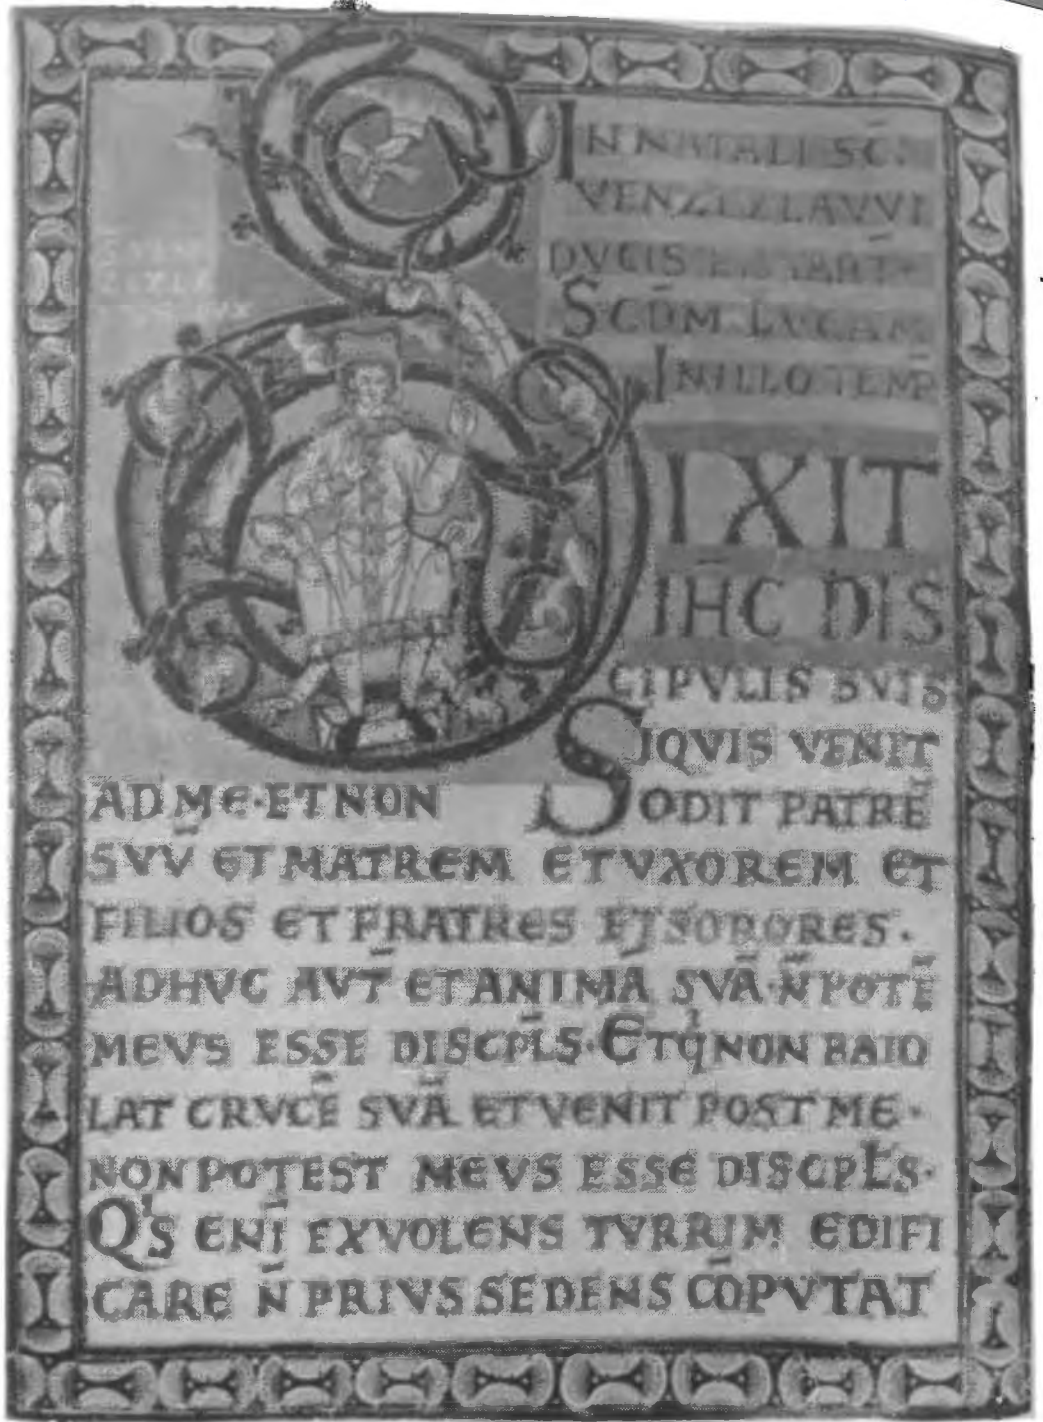 IN NATALI SC̄I
VENZEZLAVVI
DVCIS ET MART̄
S̄CDM LVCAM
IN ILLO TEMP̄
DIXIT
IH̄C DIS
CIPVLIS SVIS
SIQVIS VENIT
AD ME· ET NON
ODIT PATRĒ
SVV̄ ET MATREM ET VXOREM ET
FILIOS ET FRATRES ET SORORES·
ADHVC AVT̄ ET ANIMĀ SVĀ· N̄ POTĒ
MEVS ESSE DISCPL̄S· ET Q̇ NON BAIO
LAT CRVCĒ SVĀ ET VENIT POST ME·
NON POTEST MEVS ESSE DISCPLS·
QⁱS ENĪ EX VOLENS TVRRIM EDIFI
CARE N̄ PRIVS SEDENS CŌPVTAT